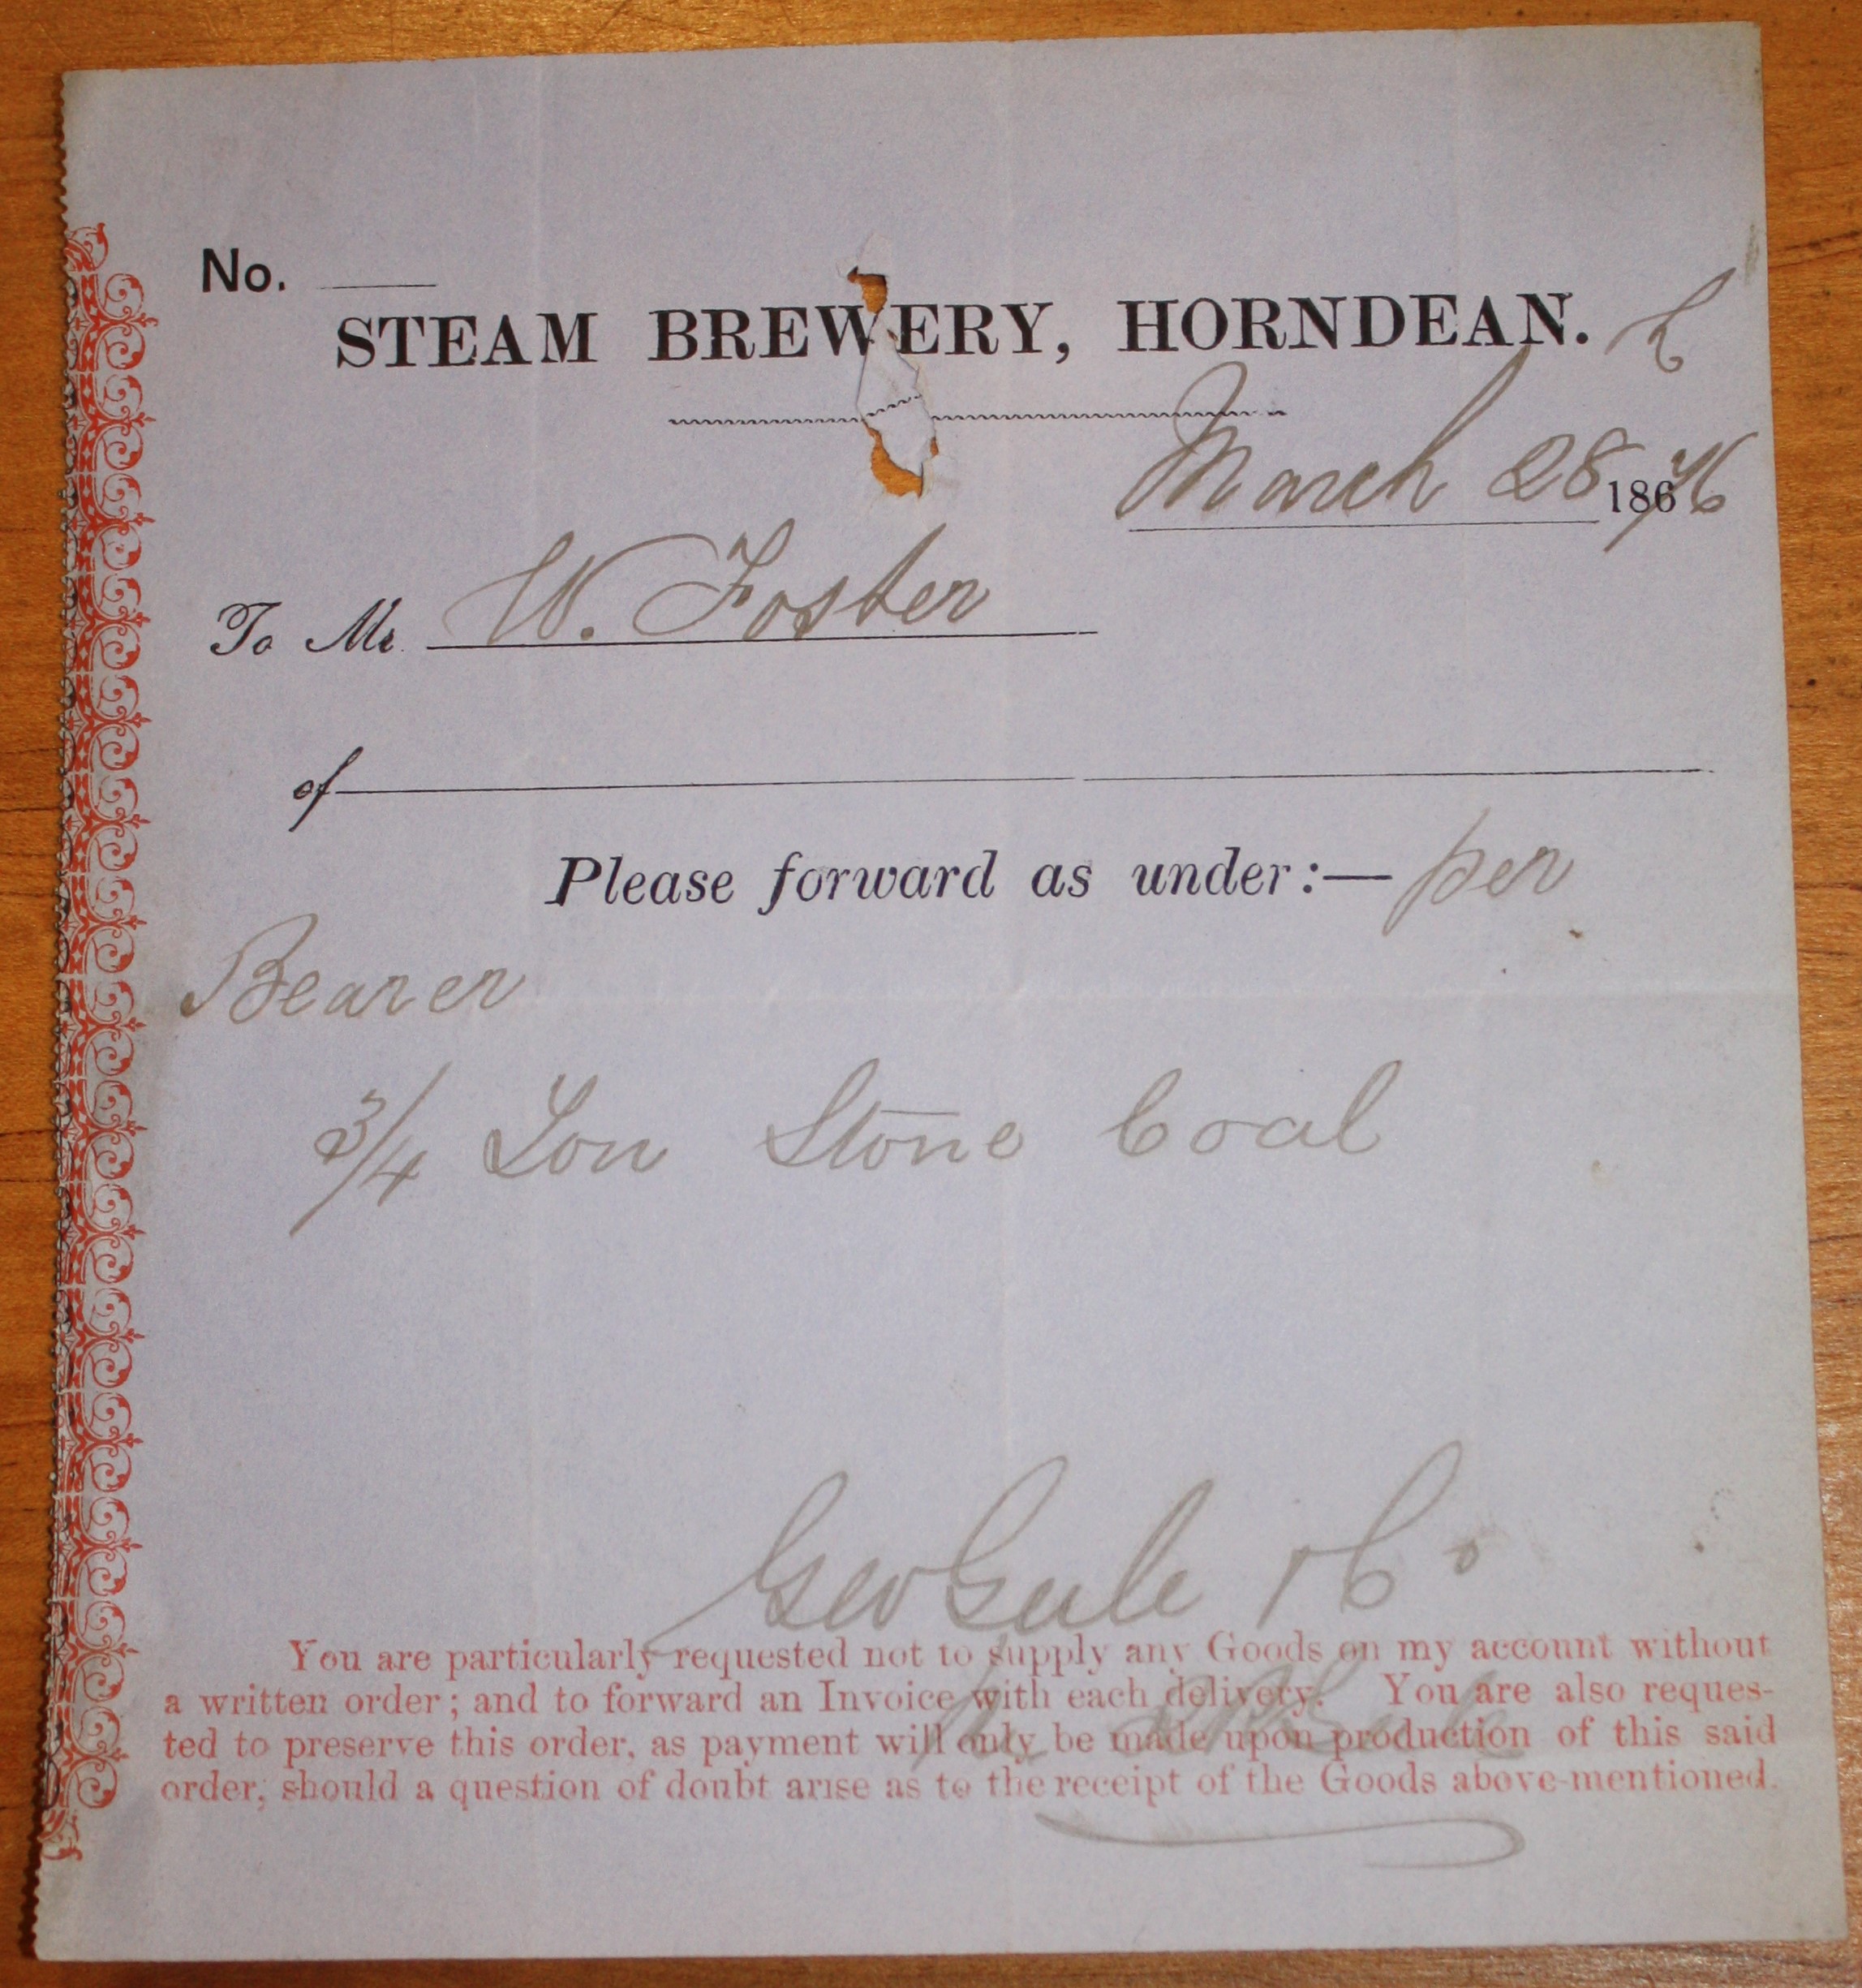 No.
STEAM BREWERY, HORNDEAN.
March 28 1876
To Mr. W. Foster
of
Please forward as under:— per
Bearer
3/4 Ton Stone Coal
Geo Gale & Co
You are particularly requested not to supply any Goods on my account without
a written order; and to forward an Invoice with each delivery. You are also reques-
ted to preserve this order, as payment will only be made upon production of this said
order, should a question of doubt arise as to the receipt of the Goods above-mentioned.